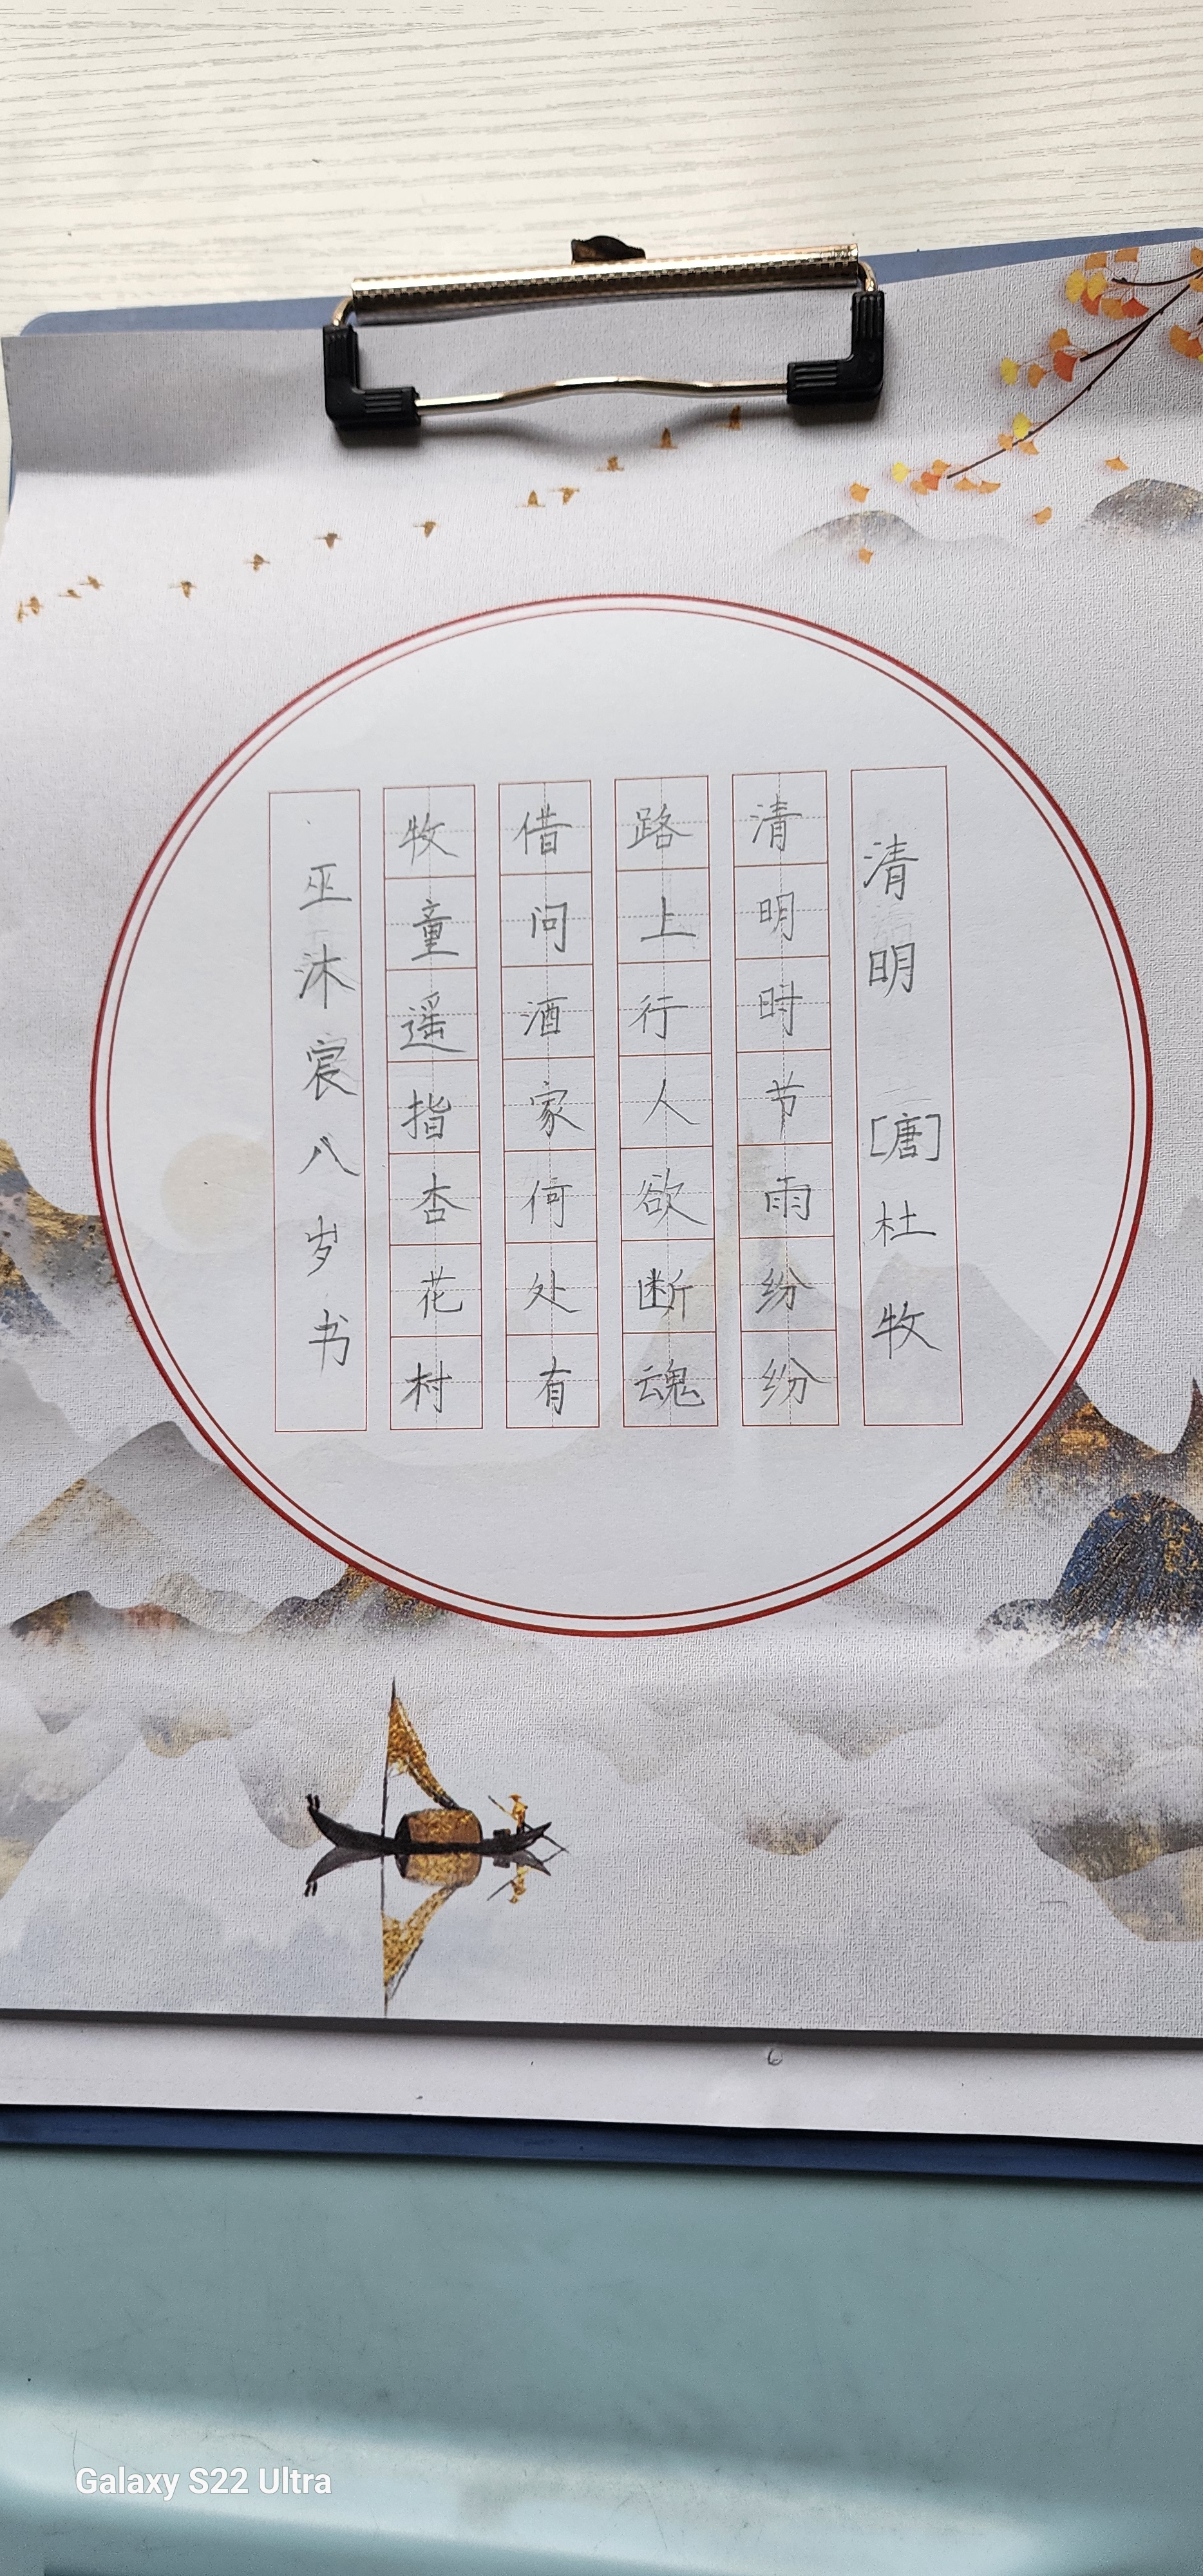 清明 [唐]杜牧
清明时节雨纷纷
路上行人欲断魂
借问酒家何处有
牧童遥指杏花村
巫沐宸八岁书
6
Galaxy S22 Ultra